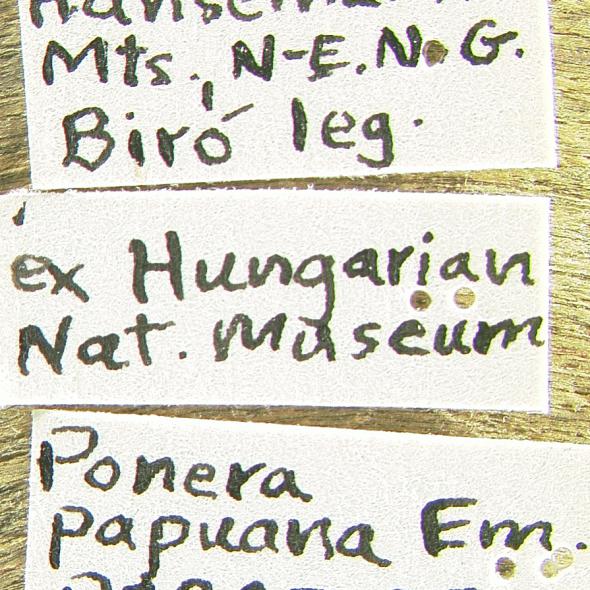 Mts., N-E.N.G.
Biró leg.
ex Hungarian
Nat. Museum
Ponera
papuana Em.